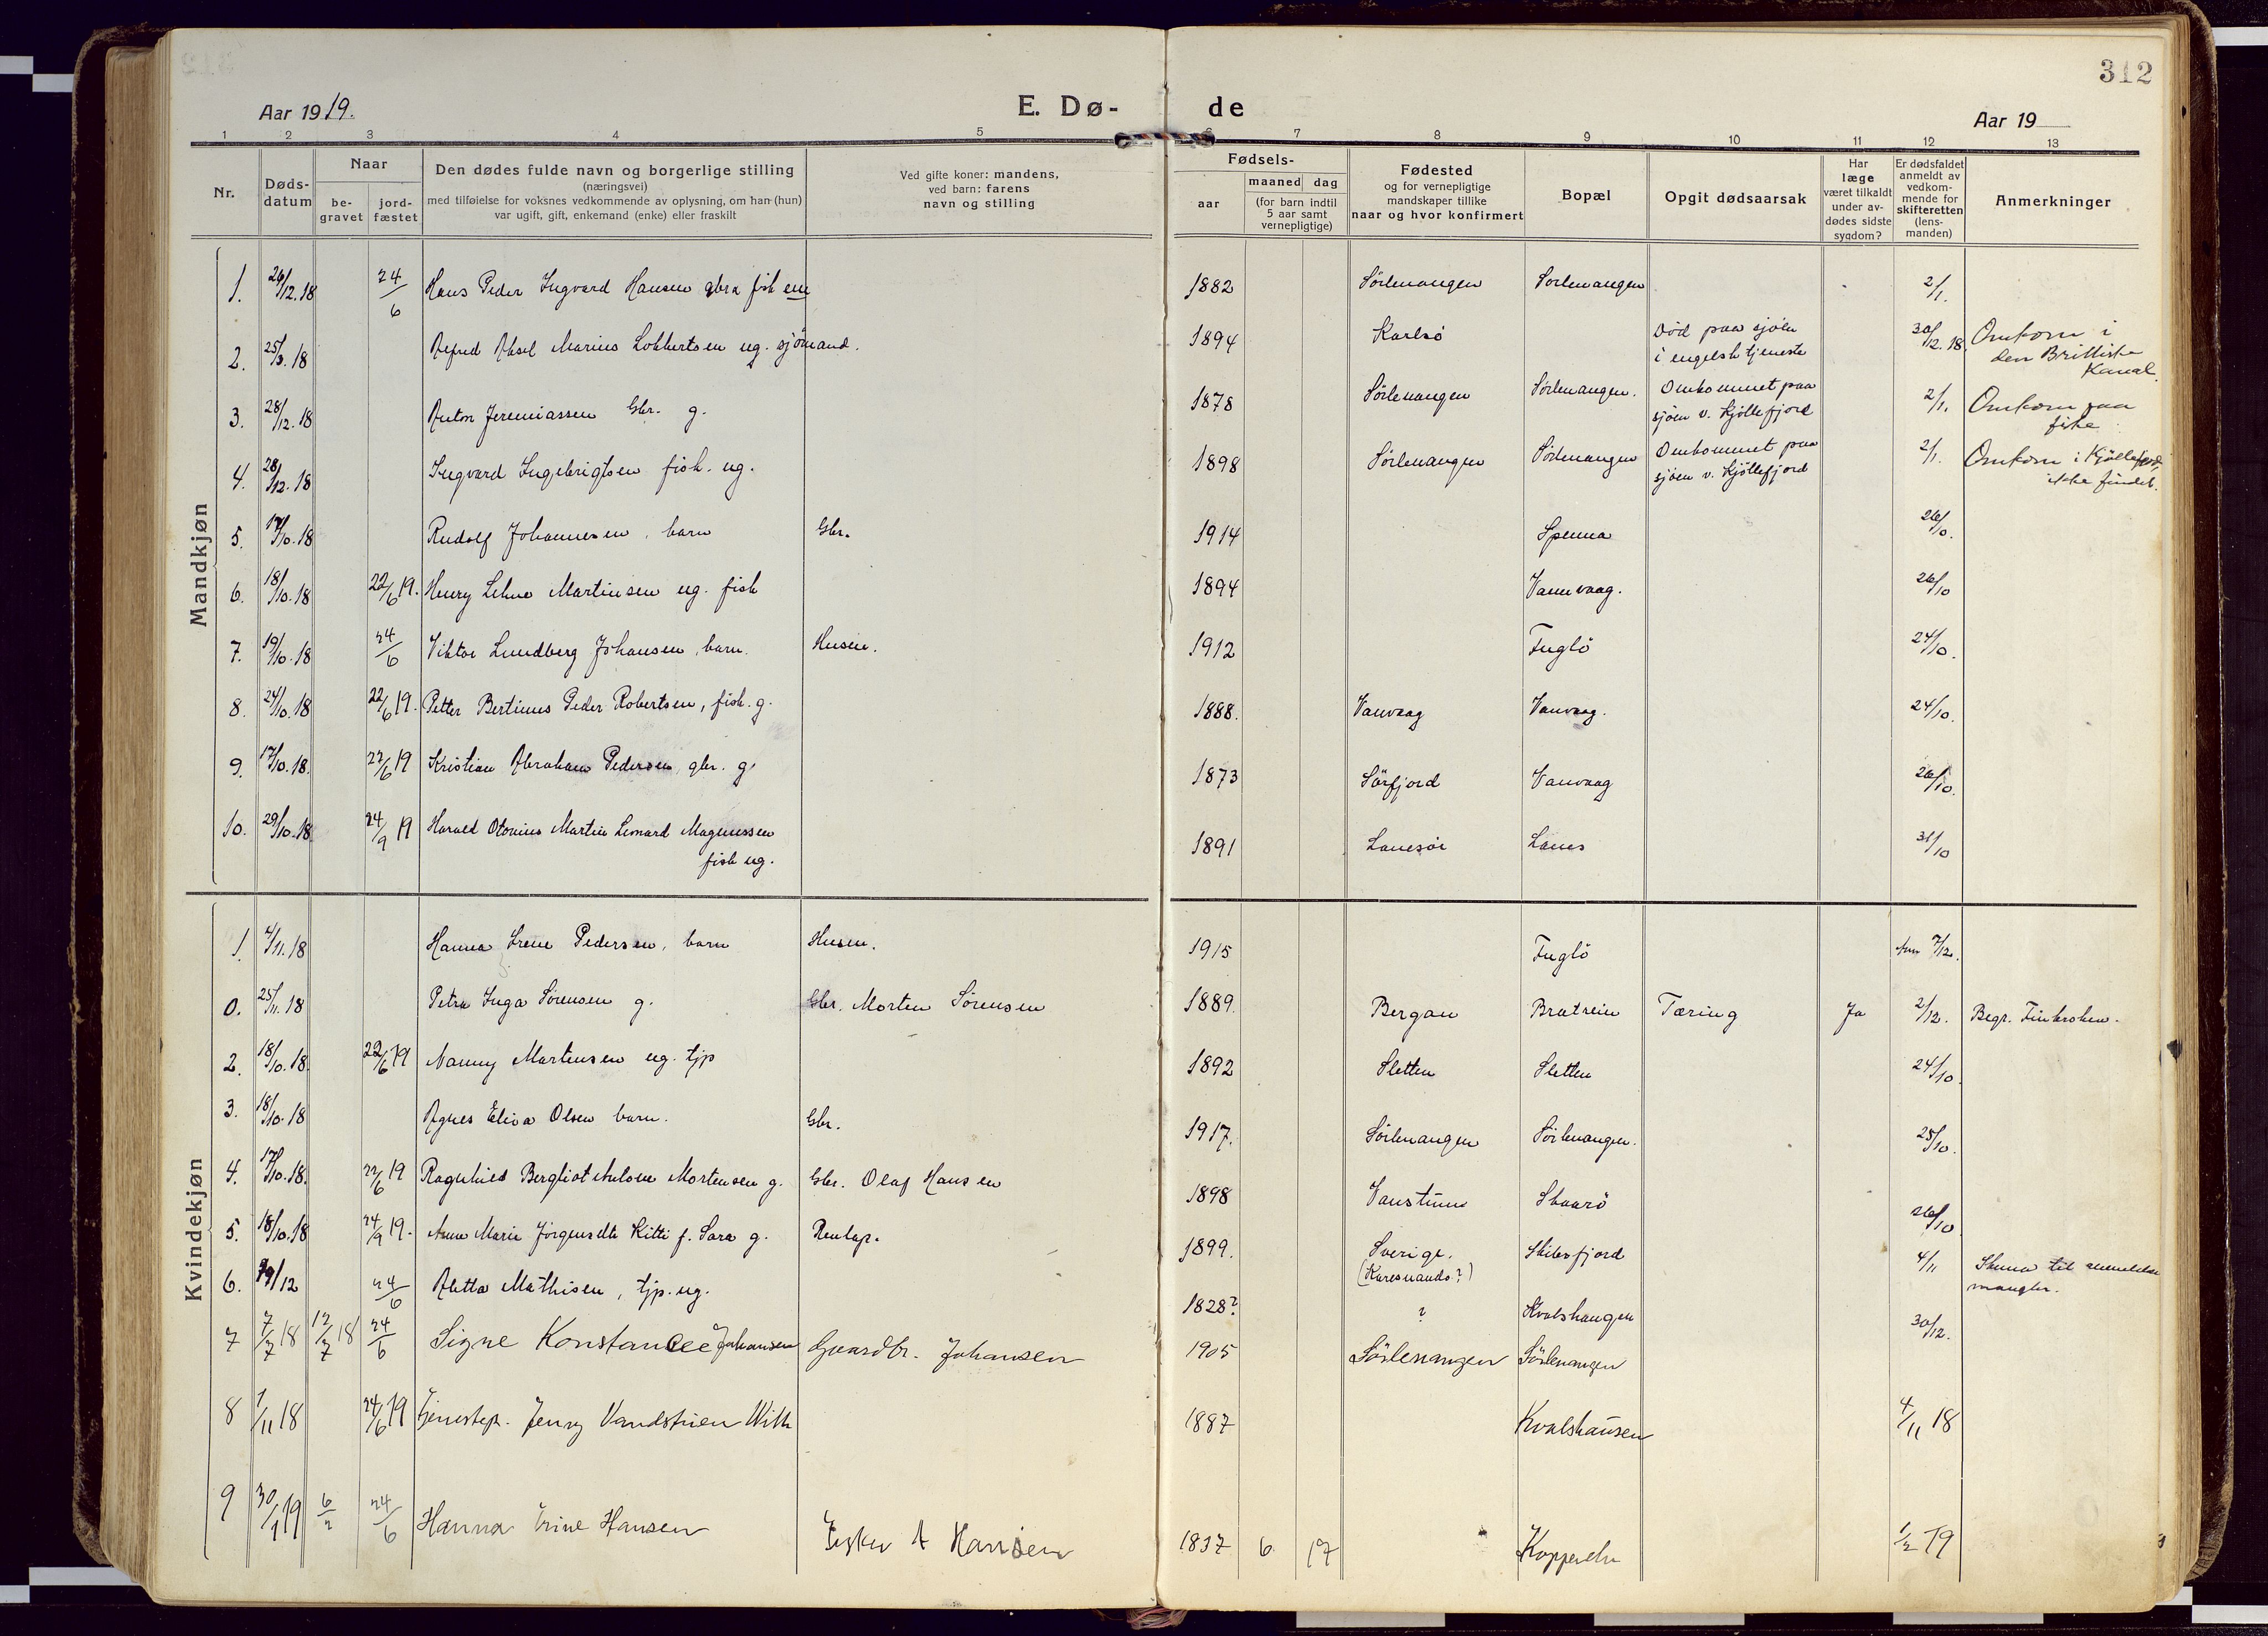 312
Aar 1919.
E. Dø- de
Aar 19
1 2 3 4 5 6 7 8 9 10 11 12 13
Nr.
Døds-
datum
Naar
be-
gravet
jord-
fæstet
Den dødes fulde navn og borgerlige stilling
(næringsvei)
med tilføielse for voksnes vedkommende av oplysning, om han (hun)
var ugift, gift, enkemand (enke) eller fraskilt
Ved gifte koner: mandens,
ved barn: farens
navn og stilling
Fødsels-
aar
maaned dag
(for barn indtil
5 aar samt
vernepligtige)
Fødested
og for vernepligtige
mandskaper tillike
naar og hvor konfirmert
Bopæl
Opgit dødsaarsak
Har
læge
været tilkaldt
under av-
dødes sidste
sygdom?
Er dødsfaldet
anmeldt av
vedkom-
mende for
skifteretten
(lens-
manden)
Anmerkninger
Mandkjøn
1. 26/12.18 24/6 Hans Peder Ingvard Hansen gbr & fisk em 1882 Sörlenangen Sörlenangen 2/1.
2. 25/3.18 Alfred Aksel Marius Lokkertsen ug. sjömand. 1894 Karlsö Död paa sjöen i engelsk tjeneste 30/12.18. Omkom i den Brittiske Kanal.
3. 28/12.18 Anton Jeremiassen Gbr. g. 1878 Sörlenangen Sörlenangen. Omkommet paa sjöen v. Kjöllefjord 2/1. Omkom paa fiske
4. 28/12.18 Ingvard Ingebrigtsen fisk. ug. 1898 Sörlenangen Sörlenangen Omkommet paa sjöen v. Kjöllefjord 2/1. Omkom i Kjöllefjord, ikke fundet.
5. 17/10.18 Rudolf Johannesen, barn Gbr. 1914 Spenna 26/10.
6. 18/10.18 22/6 19. Henry Martinsen ug. fisk 1894 Vannvaag. 26/10
7. 19/10.18 24/6 Viktor Lundberg Johansen, barn. Husm. 1912 Fuglö 24/10.
8. 24/10.18 22/6 19. Petter Bertinus Peder Robertsen, fisk. g. 1888. Vanvaag Vanvaag. 24/10.
9. 17/10.18. 22/6 19 Kristian Abraham Pedersen, gbr. g. 1873 Sörfjord Vanvaag 26/10.
10. 29/10.18. 24/9 19 Harald Otonius Martin Lenard Magnussen fisk ug. 1891 Lanesör Lanes 31/10
Kvindekjøn
1. 4/11.18 Hanna Irene Pedersen, barn Husm. 1915 Fuglö 7/12.
0. 25/11.18 Petra Inga Sörensen g. Gbr. Morten Sörensen 1889. Bergan Bratrein Tæring Ja 2/12. Begr. Finkroken.
2. 18/10.18. 22/6 19 Nanny Martensen ug. tjp 1892 Sletten Sletten 24/10.
3. 18/10.18 Agnes Eliva Olsen barn. Gbr. 1917. Sörlenangen Sörlenangen. 25/10.
4. 17/10.18. 22/6 19 Ragnhild Bergliot Mortensen g. Gbr. Olaf Hansen 1898 Vanstuen Skaarö 26/10
5. 18/10.18 24/9 19. Anne Marie Jörgensdtr Kitti f. Sara g. Renlap. 1899. Sverige. (Karesuando?) Skibsfjord 4/11 Skema til anmeldelse mangler.
6. 29/12 24/6 Aletta Mathisen, tjp. ug. 1828? ? Kvalshaugen 30/12.
7 7/7 18 12/7 18 24/6 Signe Konstance Johansen Gaardbr. Johansen 1905 Sörlenangen Sörlenangen
8 1/11 18 24/6 19 tjenestep. Jenny Vandstuen With 1887 Kvalshausen 4/11 18
9 30/1 19 6/2 24/6 Hanna Trine Hansen Fisker A Hansen 1837 6 17 1/2 19